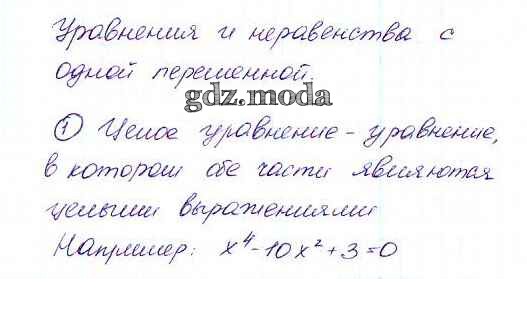 Уравнения и неравенства с
одной переменной.
gdz.moda
① Целое уравнение - уравнение,
в котором обе части являются
целыми выражениями
Например: x⁴-10x²+3=0